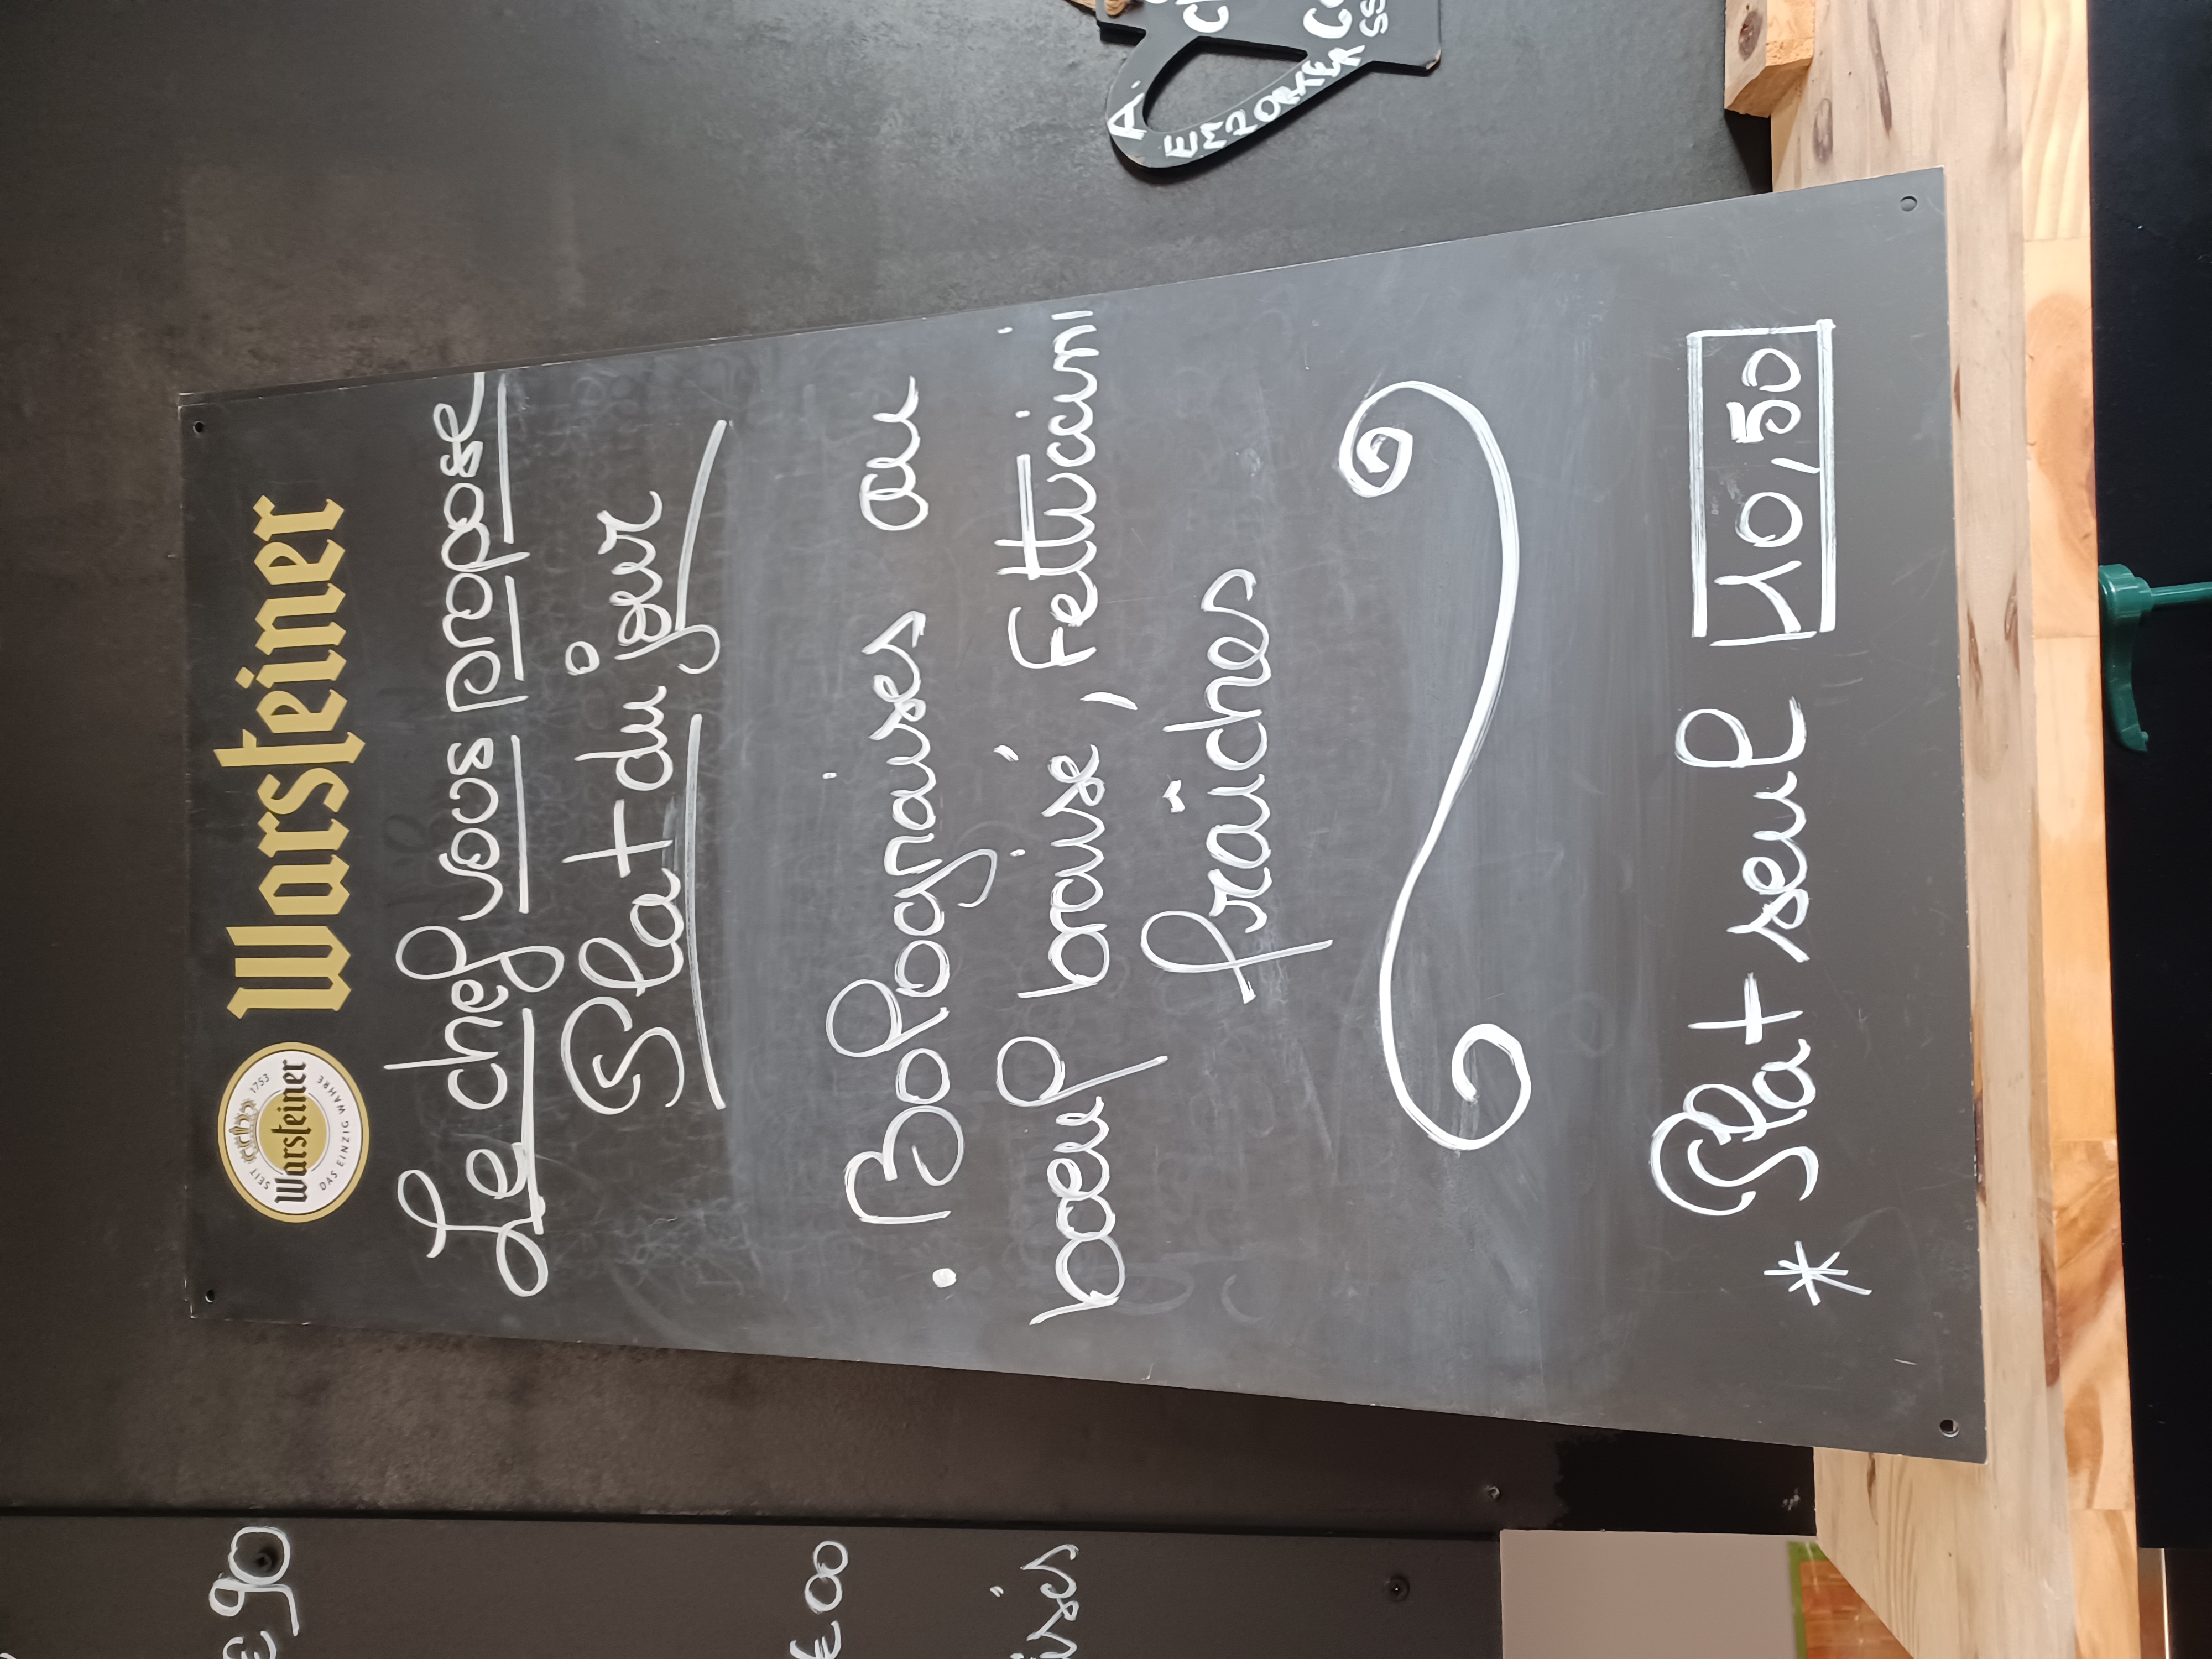 Warsteiner
SEIT 1753
Warsteiner
DAS EINZIG WAHRE
Le chef vous propose
Plat du jour
. Bolognaises au
boeuf braisé, Fettucuini
fraîches
* Plat seul 10,50
A.
EMPORTER
€90
€00